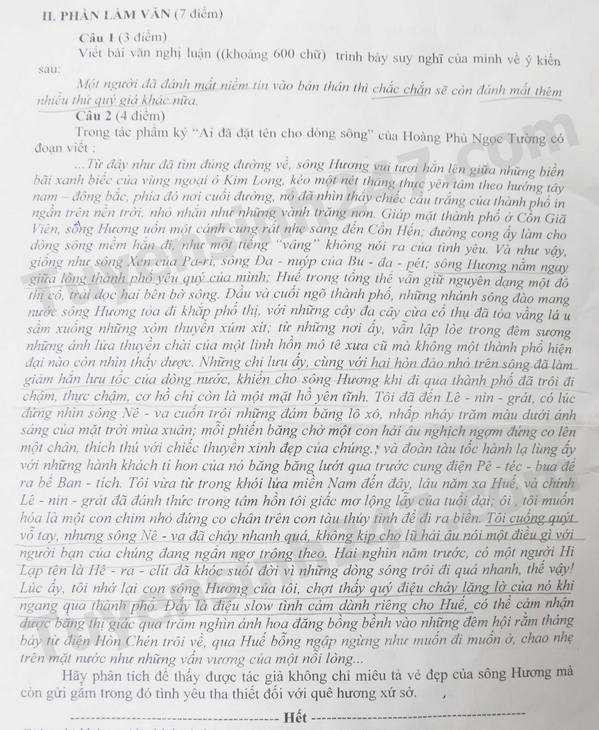 II. PHẦN LÀM VĂN (7 điểm)
Câu 1 (3 điểm)
Viết bài văn nghị luận ((khoảng 600 chữ) trình bày suy nghĩ của mình về ý kiến
sau:
Một người đã đánh mất niềm tin vào bản thân thì chắc chắn sẽ còn đánh mất thêm
nhiều thứ quý giá khác nữa.
Câu 2 (4 điểm)
Trong tác phẩm ký "Ai đã đặt tên cho dòng sông" của Hoàng Phủ Ngọc Tường có
đoạn viết :
...Từ đây như đã tìm đúng đường về, sông Hương vui tươi hẳn lên giữa những biền
bãi xanh biếc của vùng ngoại ô Kim Long, kéo một nét thẳng thực yên tâm theo hướng tây
nam – đông bắc, phía đó nơi cuối đường, nó đã nhìn thấy chiếc cầu trắng của thành phố in
ngần trên nền trời, nhỏ nhắn như những vành trăng non. Giáp mặt thành phố ở Cồn Giã
Viên, sông Hương uốn một cánh cung rất nhẹ sang đến Cồn Hến; đường cong ấy làm cho
dòng sông mềm hẳn đi, như một tiếng "vâng" không nói ra của tình yêu. Và như vậy,
giống như sông Xen của Pa-ri, sông Đa - nuýp của Bu - đa - pét; sông Hương nằm ngay
giữa lòng thành phố yêu quý của mình; Huế trong tổng thể vẫn giữ nguyên dạng một đô
thị cổ, trải dọc hai bên bờ sông. Đầu và cuối ngõ thành phố, những nhánh sông đào mang
nước sông Hương tỏa đi khắp phố thị, với những cây đa cây cừa cổ thụ đã tỏa vầng lá u
sầm xuống những xóm thuyền xúm xít; từ những nơi ấy, vẫn lập lòe trong đêm sương
những ánh lửa thuyền chài của một linh hồn mô tê xưa cũ mà không một thành phố hiện
đại nào còn nhìn thấy được. Những chi lưu ấy, cùng với hai hòn đảo nhỏ trên sông đã làm
giảm hẳn lưu tốc của dòng nước, khiến cho sông Hương khi đi qua thành phố đã trôi đi
chậm, thực chậm, cơ hồ chỉ còn là một mặt hồ yên tĩnh. Tôi đã đến Lê - nin - grát, có lúc
đứng nhìn sông Nê - va cuốn trôi những đám băng lô xô, nhấp nháy trăm màu dưới ánh
sáng của mặt trời mùa xuân; mỗi phiến băng chở một con hải âu nghịch ngợm đứng co lên
một chân, thích thú với chiếc thuyền xinh đẹp của chúng.; và đoàn tàu tốc hành lạ lùng ấy
với những hành khách tí hon của nó băng băng lướt qua trước cung điện Pê - téc - bua để
ra bể Ban - tích. Tôi vừa từ trong khói lửa miền Nam đến đây, lâu năm xa Huế, và chính
Lê - nin - grát đã đánh thức trong tâm hồn tôi giấc mơ lộng lẫy của tuổi dại; ôi , tôi muốn
hóa là một con chim nhỏ đứng co chân trên con tàu thủy tinh để đi ra biển. Tôi cuống quýt
vỗ tay, nhưng sông Nê - va đã chảy nhanh quá, không kịp cho lũ hải âu nói một điều gì với
người bạn của chúng đang ngẩn ngơ trông theo. Hai nghìn năm trước, có một người Hi
Lạp tên là Hê - ra - clít đã khóc suốt đời vì những dòng sông trôi đi quá nhanh, thế vậy!
Lúc ấy, tôi nhớ lại con sông Hương của tôi, chợt thấy quý điệu chảy lặng lờ của nó khi
ngang qua thành phố. Đấy là điệu slow tình cảm dành riêng cho Huế, có thể cảm nhận
được bằng thị giác qua trăm nghìn ánh hoa đăng bồng bềnh vào những đêm hội rằm tháng
bảy từ điện Hòn Chén trôi về, qua Huế bỗng ngập ngừng như muốn đi muốn ở, chao nhẹ
trên mặt nước như những vấn vương của một nỗi lòng...
Hãy phân tích để thấy được tác giả không chỉ miêu tả vẻ đẹp của sông Hương mà
còn gửi gắm trong đó tình yêu tha thiết đối với quê hương xứ sở.
Hết